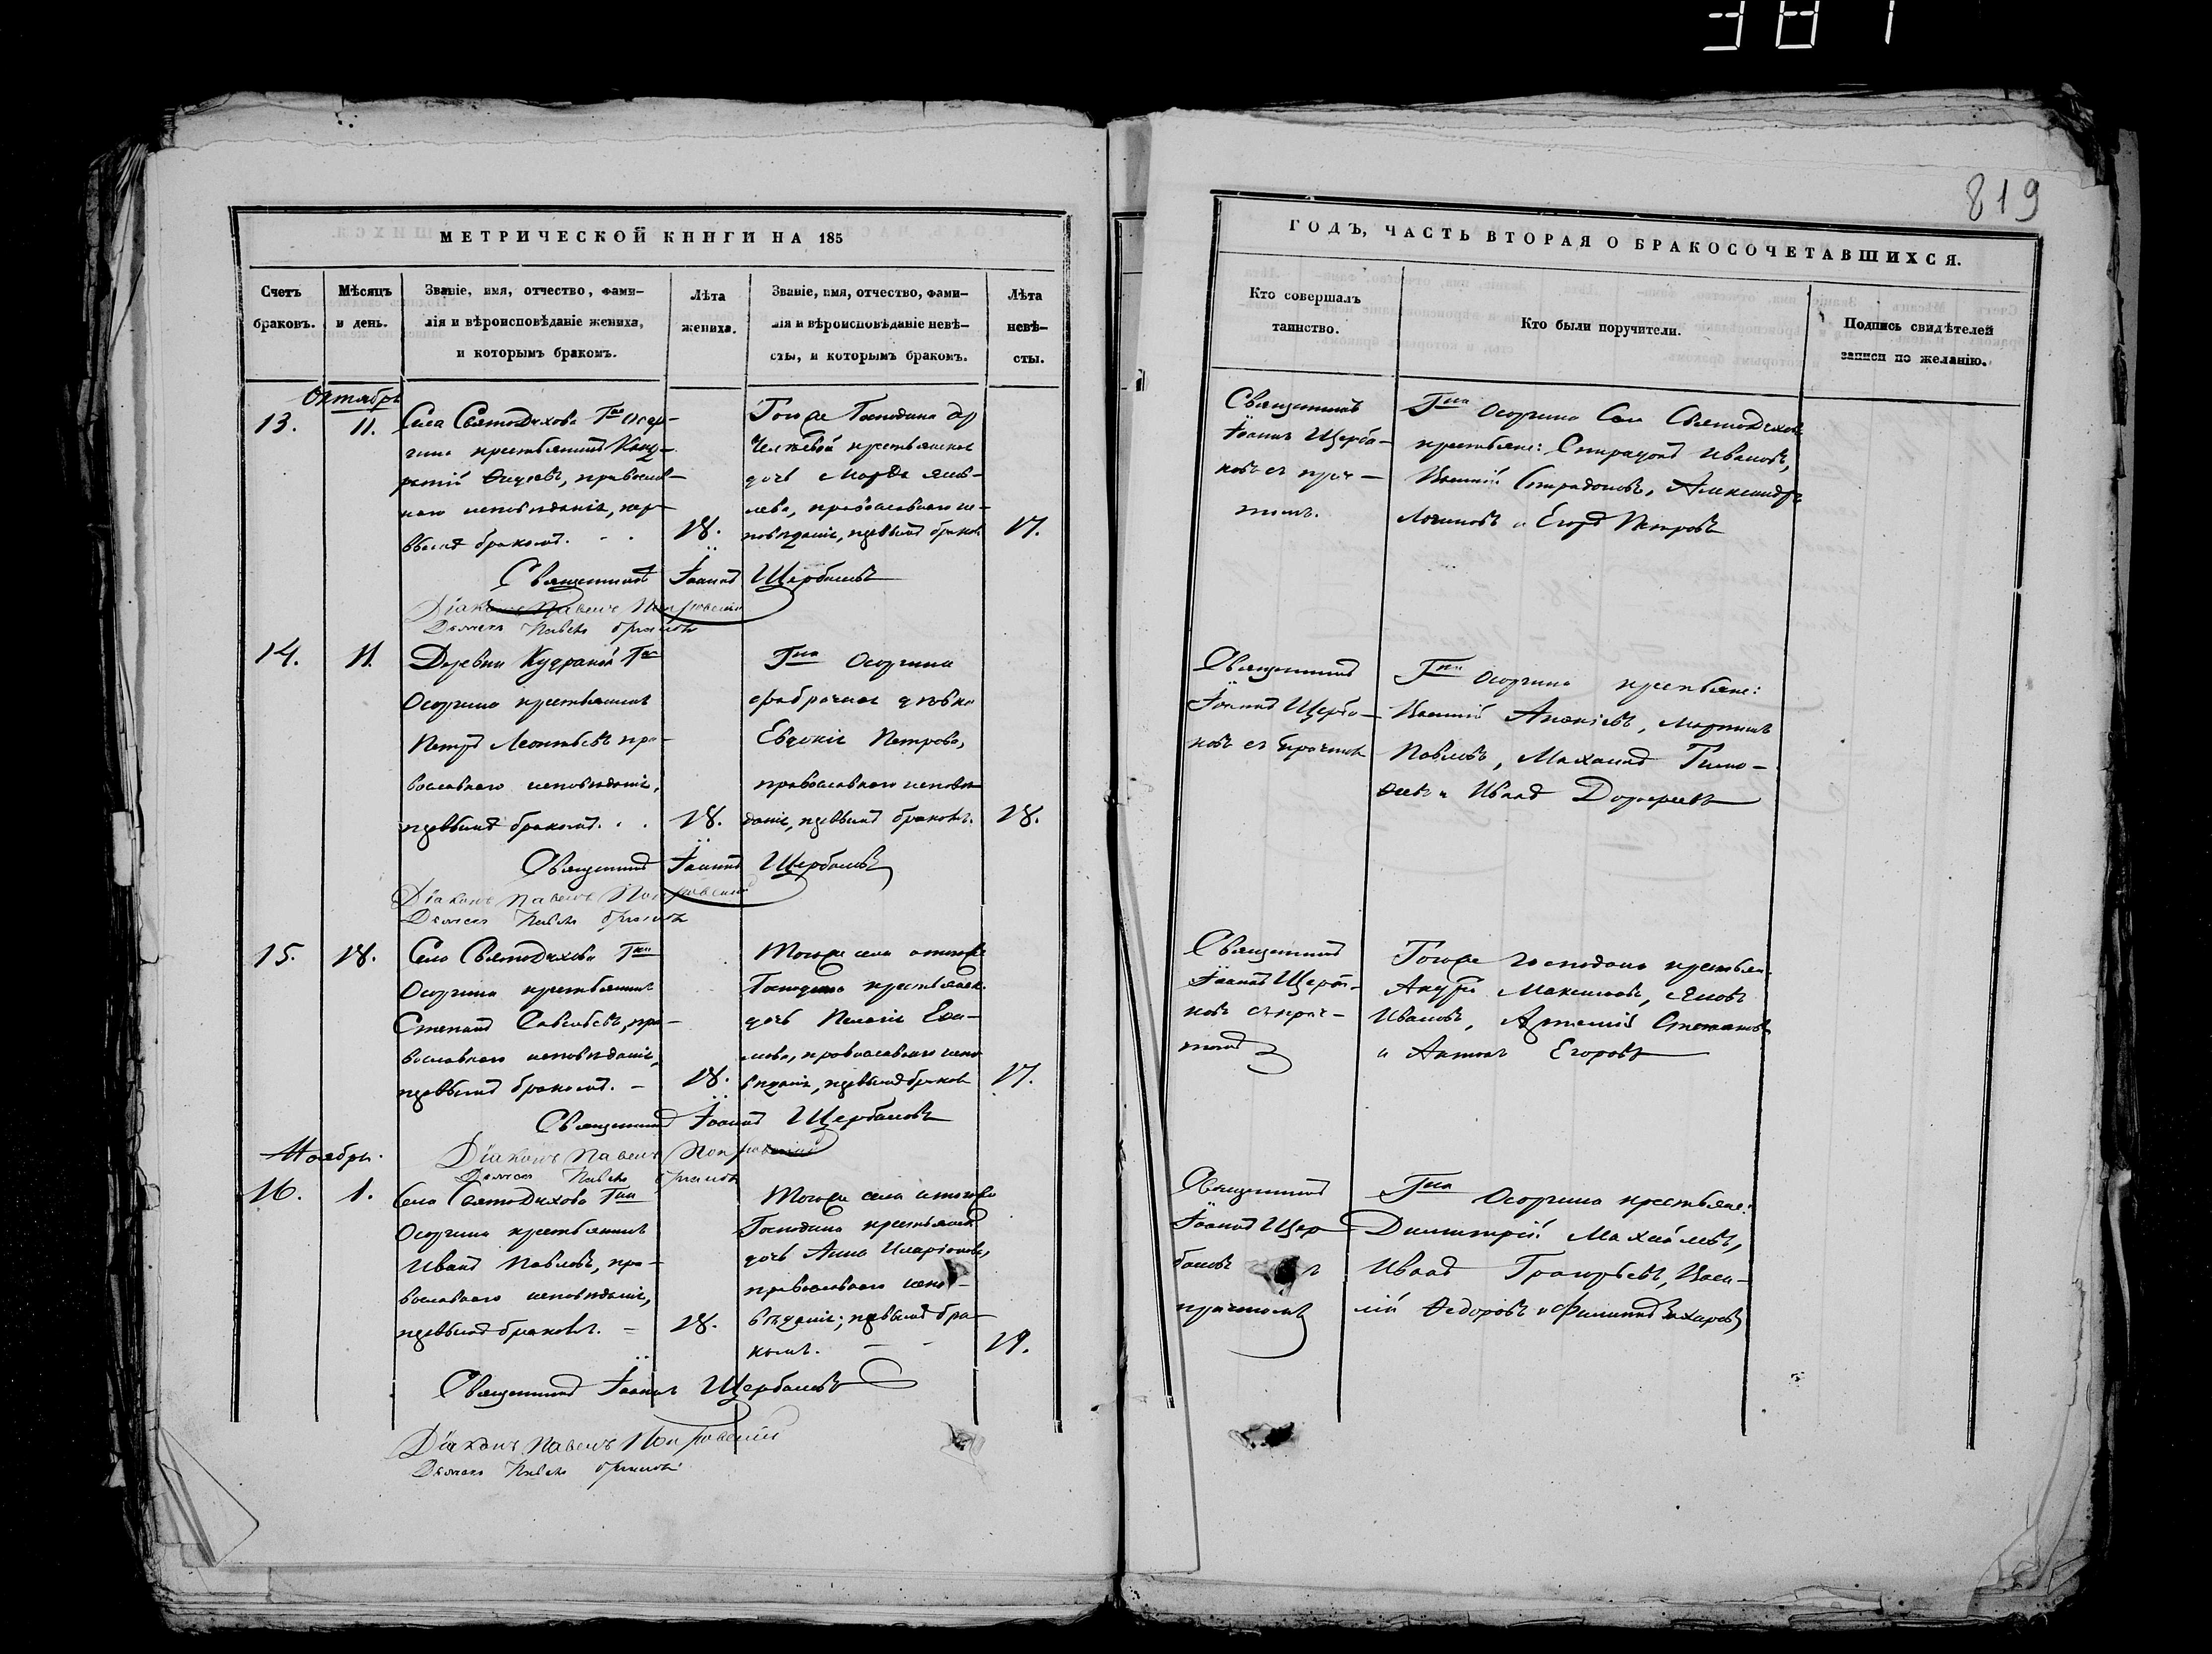 381
819
МЕТРИЧЕСКОЙ КНИГИ НА 185
Счетъ браковъ.
Мѣсяцъ и день.
Званіе, имя, отчество, фами-
лія и вѣроисповѣданіе жениха,
и которымъ бракомъ.
Лѣта жениха.
Званіе, имя, отчество, фами-
лія и вѣроисповѣданіе невѣ-
сты, и которымъ бракомъ.
Лѣта невѣ-
сты.
Октябрь
13.
11.
Села Святодухова Гна Осор-
гина крестьянинъ
православ-
наго исповѣданія, пер-
вымъ бракомъ.
18.
Того же Господина
крестьянская
дочь Марѳа Яков-
лева, православнаго ис-
повѣданія, первымъ бракомъ
17.
Священникъ Іоаннъ Щербаковъ
Діаконъ Павелъ Покровскій
14.
11.
Деревни Гна
Осоргина крестьянинъ
Петръ Леонтьевъ пра-
вославнаго исповѣданія,
первымъ бракомъ.
18.
Гна Осоргина
фабричная дѣвка
Евдокія Петрова,
православнаго исповѣ-
данія, первымъ бракомъ.
18.
Священникъ Іоаннъ Щербаковъ
Діаконъ Павелъ Покровскій
15.
18.
Села Святодухова Гна
Осоргина крестьянинъ
Степанъ Савельевъ, пра-
вославнаго исповѣданія,
первымъ бракомъ.
18.
Того же села и того же
Господина крестьянск.
дочь Пелагія
православнаго испо-
вѣданія, первымъ бракомъ
17.
Священникъ Іоаннъ Щербаковъ
Діаконъ Павелъ Покровскій
Ноябрь.
16.
1.
Села Святодухова Гна
Осоргина крестьянинъ
Иванъ Павловъ, пра-
вославнаго исповѣданія,
первымъ бракомъ.
18.
Того же села и того же
Господина крестьянск
дочь Анна Иларіонова,
православнаго испо-
вѣданія; первымъ бра-
комъ.
19.
Священникъ Іоаннъ Щербаковъ
Діаконъ Павелъ Покровскій
ГОДЪ, ЧАСТЬ ВТОРАЯ О БРАКОСОЧЕТАВШИХСЯ.
Кто совершалъ таинство.
Кто были поручители.
Подпись свидѣтелей
записи по желанію.
Священникъ
Іоаннъ Щерба-
ковъ съ прич-
томъ.
Гна Осоргина Села Святодухова
крестьяне: Спиридонъ Ивановъ,
Василій Спиридоновъ, Александръ
Логиновъ и Егоръ Петровъ
Священникъ
Іоаннъ Щерба-
ковъ съ причтомъ
Гна Осоргина крестьяне:
Василій Ананіевъ, Мартинъ
Павловъ, Михаилъ Тимо-
ѳеевъ и Иванъ Дороѳеевъ
Священникъ
Іоаннъ Щерба-
ковъ съ прич-
томъ
Того же Господина крестьян:
Андрей Максимовъ, Яковъ
Ивановъ, Артемій Степановъ
и Антонъ Егоровъ
Священникъ
Іоаннъ Щер-
баковъ съ
причтомъ
Гна Осоргина крестьяне:
Димитрій Михайловъ,
Иванъ Григорьевъ, Васи-
лій Ѳедоровъ и Филиппъ Захаровъ